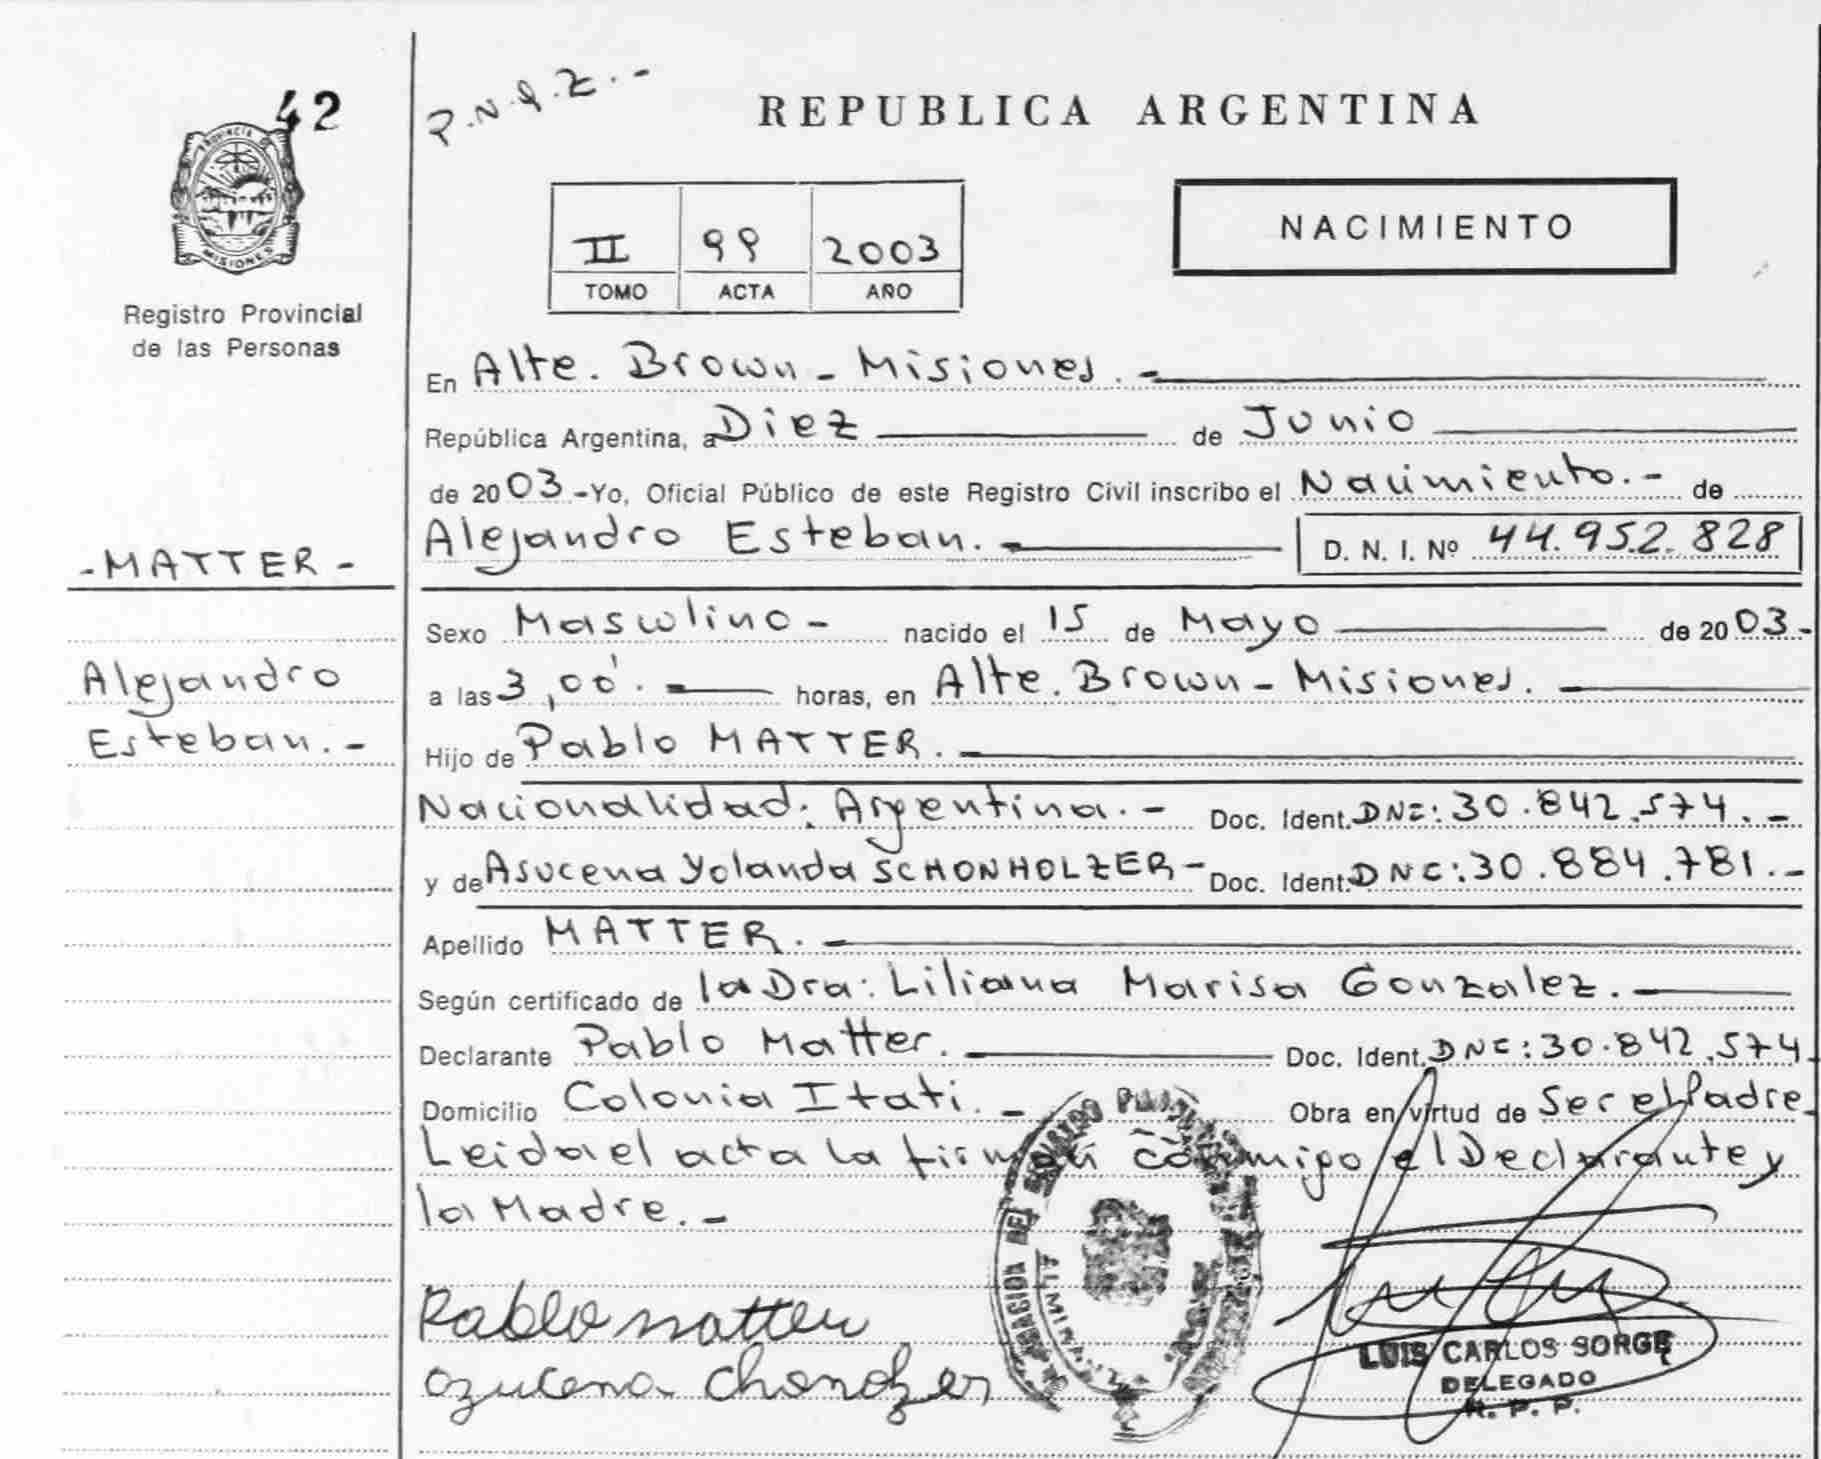 42
P.N.Q.Z.-
REPUBLICA ARGENTINA
PROVINCIA
MISIONES
Registro Provincial
de las Personas
II 99 2003
TOMO ACTA AÑO
NACIMIENTO
En Alte. Brown - Misiones.-
República Argentina, a Diez de Junio
de 2003.- Yo, Oficial Público de este Registro Civil inscribo el Nacimiento.- de
Alejandro Esteban.- D. N. I. Nº 44.952.828
-MATTER-
Alejandro
Esteban.-
Sexo Masculino- nacido el 15 de Mayo de 2003.-
a las 3,00'.- horas, en Alte. Brown - Misiones.-
Hijo de Pablo MATTER.-
Nacionalidad: Argentina.- Doc. Ident. DNI: 30.842.574.-
y de Asucena Yolanda SCHONHOLZER- Doc. Ident. DNI: 30.884.781.-
Apellido MATTER.-
Según certificado de la Dra: Liliana Marisa Gonzalez.-
Declarante Pablo Matter.- Doc. Ident. DNI: 30.842.574.
Domicilio Colonia Itati.- Obra en virtud de Ser el Padre.
Leida el acta la firman conmigo el Declarante y
la Madre.-
Pablo matter
azucena chondzer
LUIS CARLOS SORGE
DELEGADO
R. P. P.